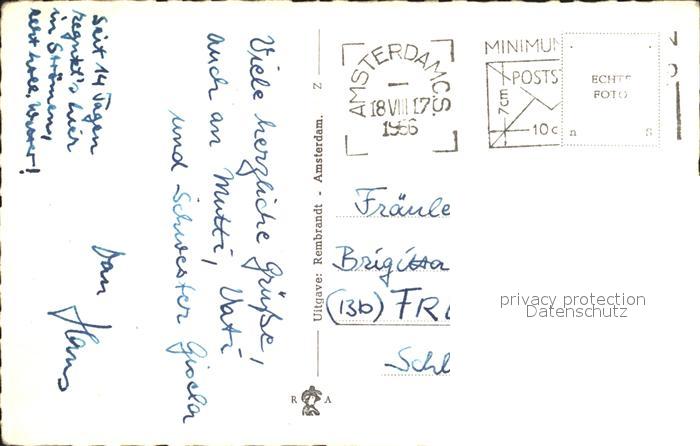 Seit 14 Tagen
regnet's hier
in Strömen,
Viele herzliche Grüße,
auch an Mutti, Vati
und Schwester Gisela
Hans
Uitgave: Rembrandt - Amsterdam. Z
R A
AMSTERDAM C.S.
18 VIII 17
1956
MINIMUM
POSTS
10c
ECHTE
FOTO
n S
Fräule
Brigitta
(13b) FR
Schl
privacy protection
Datenschutz